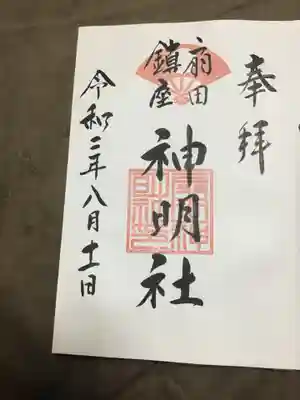 奉拝
扇田
鎮座
神明社
令和二年八月十一日